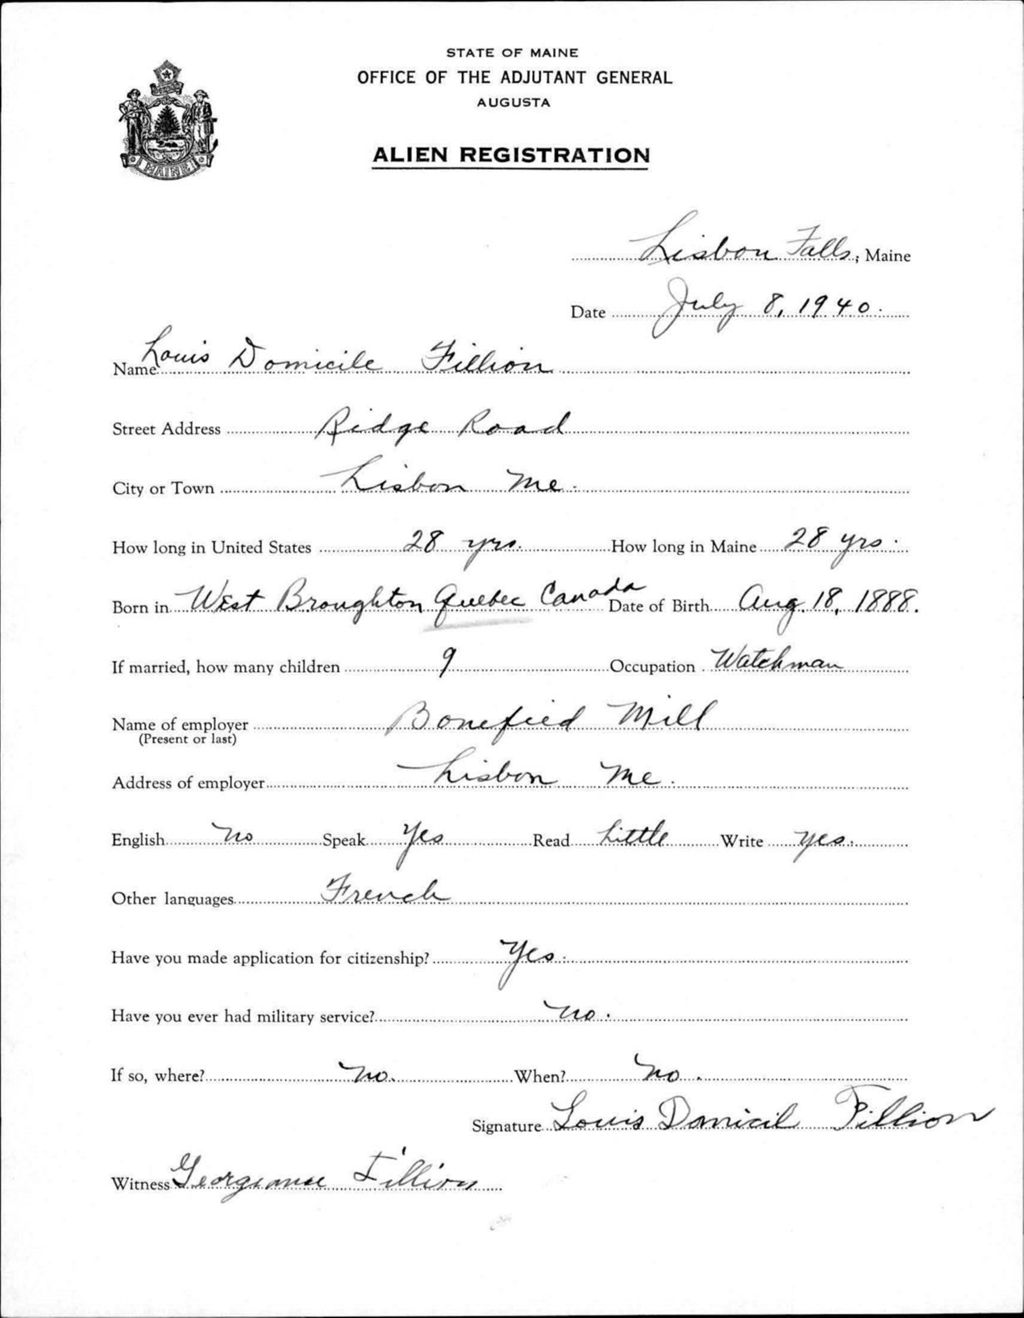 STATE OF MAINE
OFFICE OF THE ADJUTANT GENERAL
AUGUSTA
ALIEN REGISTRATION
MAINE
Lisbon Falls, Maine
Date July 8, 1940.
Name Louis Domicile Fillion
Street Address Ridge Road
City or Town Lisbon Me.
How long in United States 28 yrs. How long in Maine 28 yrs.
Born in West Broughton Quebec Canada Date of Birth Aug. 18, 1888.
If married, how many children 9 Occupation Watchman
Name of employer Bonefied Mill
(Present or last)
Address of employer Lisbon Me.
English No Speak Yes Read Little Write Yes.
Other languages French
Have you made application for citizenship? Yes.
Have you ever had military service? No.
If so, where? No. When? No.
Signature Louis Domicil Fillion
Witness Fillion